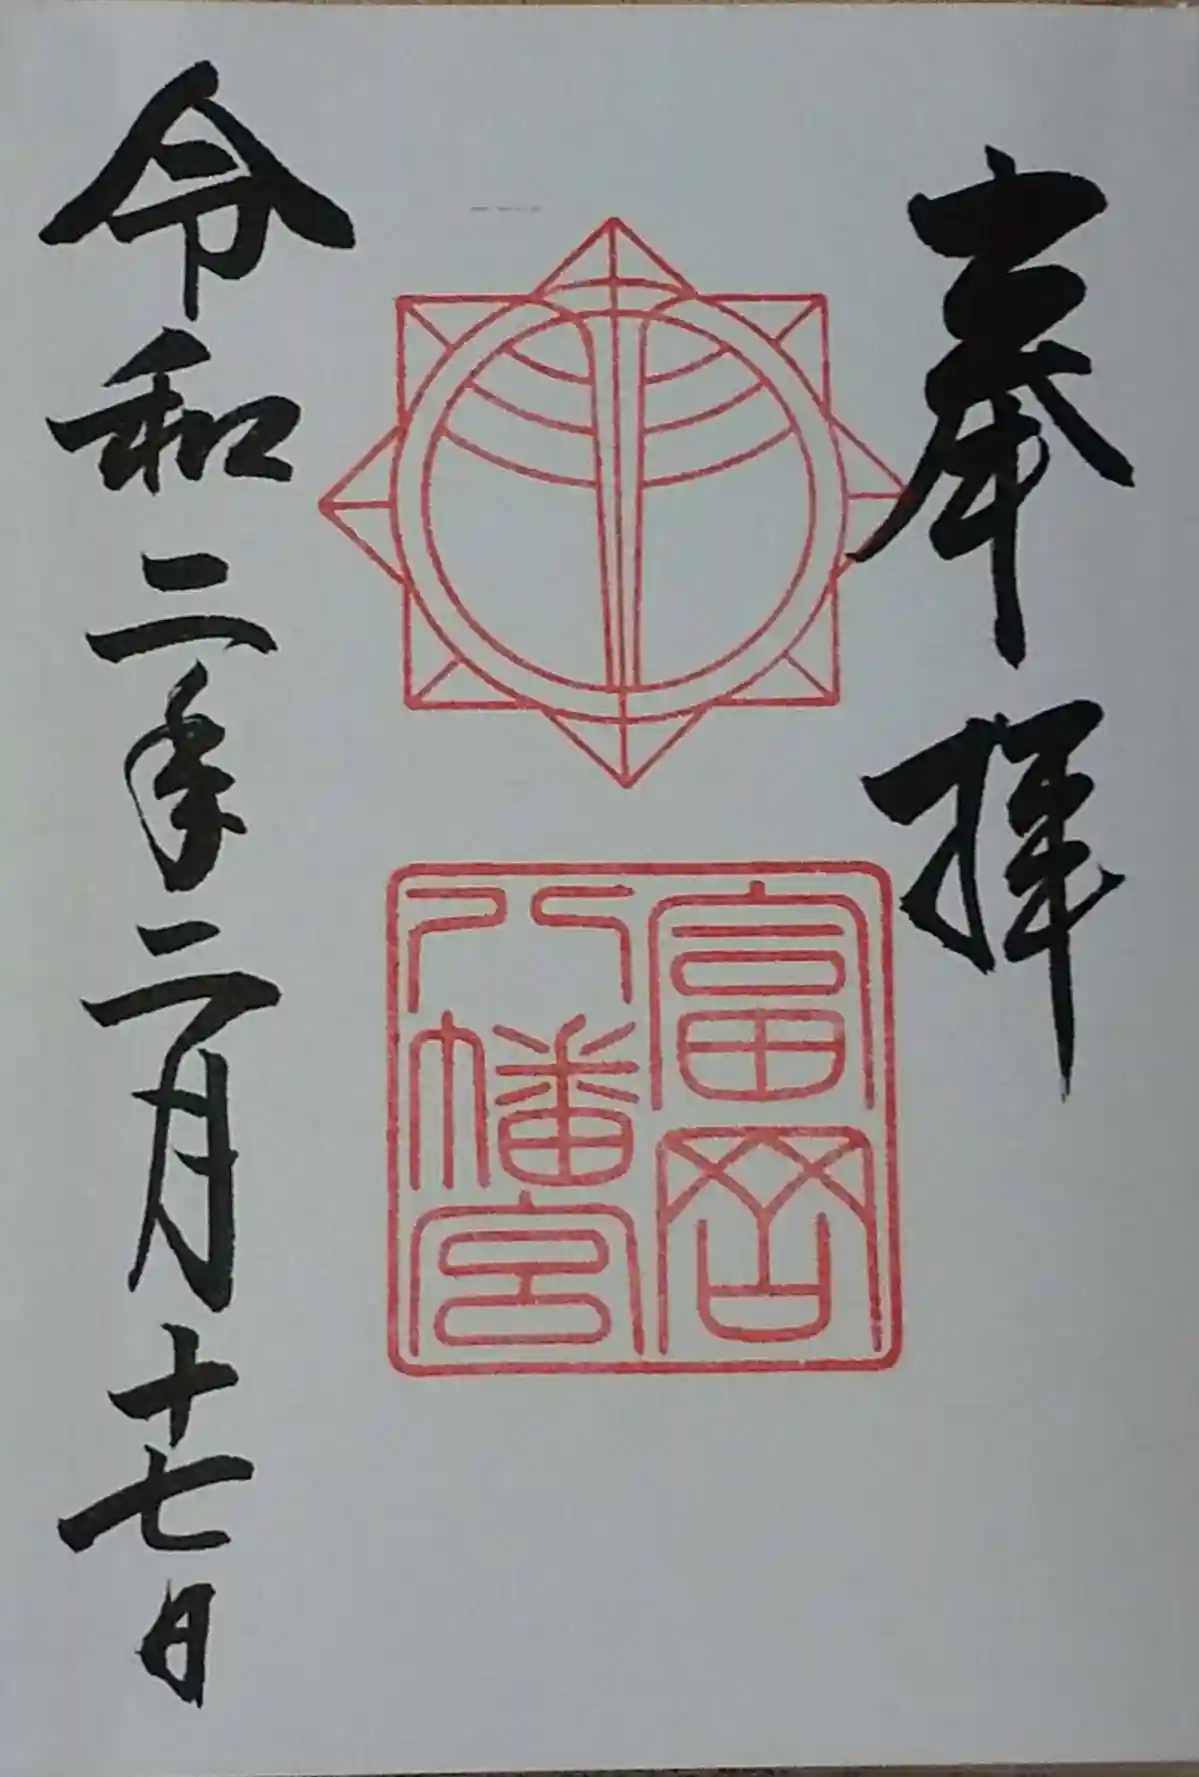 奉拝
富岡
八幡宮
令和二年二月十七日